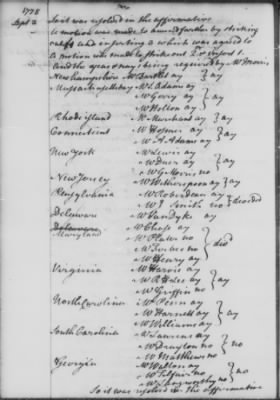 1778
Sept 2
So it was resolved in the affirmative
A motion was made to amend further by striking
out and inserting a which was agreed to
A motion was made to strike out
and the yeas & nays being required by Mr Morris
New hampshire Mr Bartlet ay } ay
Massachusettsbay Mr S. Adams ay
Mr Gerry ay } ay
Mr Holton ay
Rhode island Mr Marchant ay } ay
Connecticut Mr Hosmer ay } ay
Mr A. Adams ay
New York Mr Lewis ay
Mr Duer ay } ay
Mr G. Morris no
New Jersey Mr Witherspoon ay } ay
Pensylvania Mr Roberdeau ay } divided
Mr J. Smith no
Delaware Mr Van Dyke ay
Delaware
Maryland Mr Chase ay
Mr Plater no } divd
Mr Forbes no
Mr Henry ay
Virginia Mr Harvie ay
Mr R H Lee ay } ay
Mr Griffin no
North Carolina Mr Penn ay
Mr Harnett ay } ay
Mr Williams ay
South Carolina Mr Laurens ay
Mr Drayton no } no
Mr Matthews no
Georgia Mr Walton ay
Mr Telfair no } no
Mr Langworthy no
So it was resolved in the affirmative